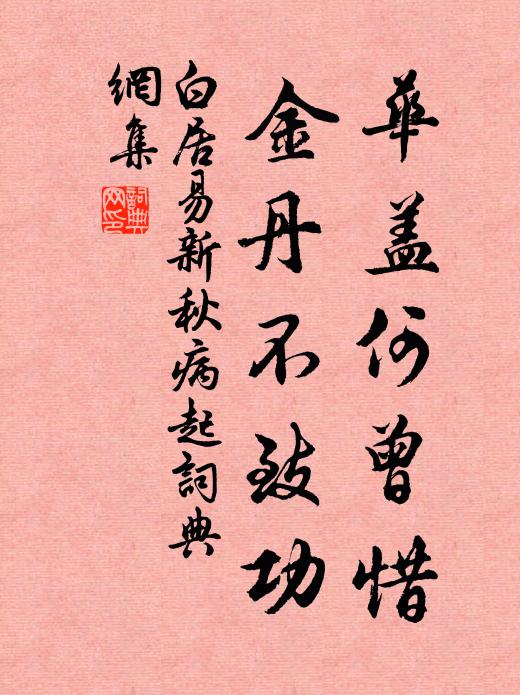 華蓋何曾惜
金丹不致功
白居易新秋病起詞典
網集
詞典
网印